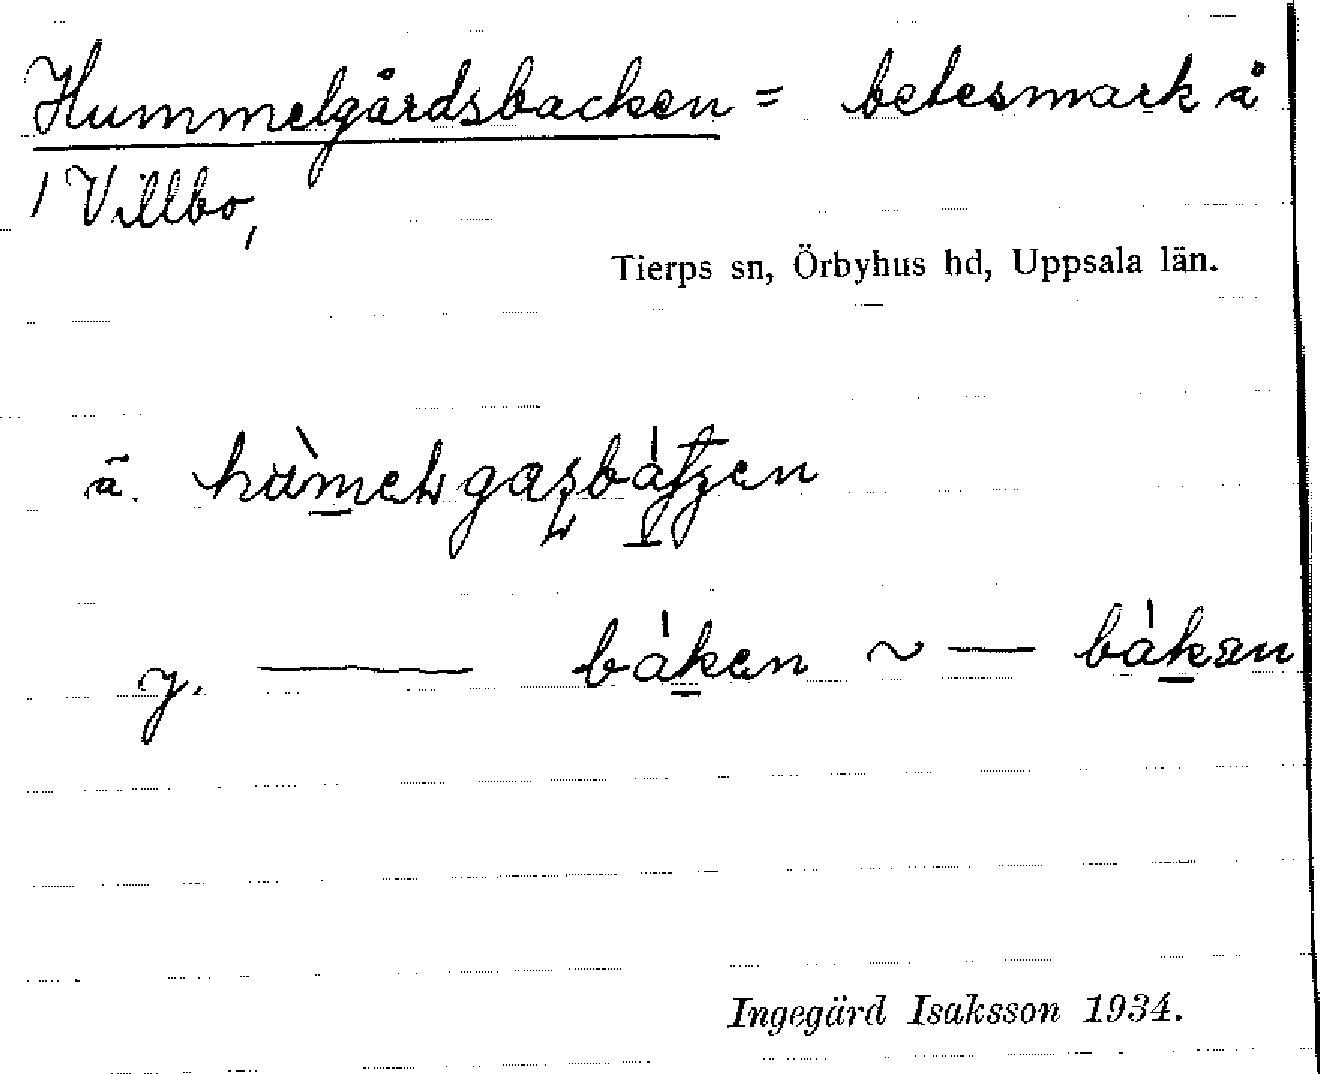 Hummelgårdsbacken = betesmark å
1 Villbo,
Tierps sn, Örbyhus hd, Uppsala län.
ä.
y. ——— bàken ~ — bàkæn
Ingegärd Isaksson 1934.